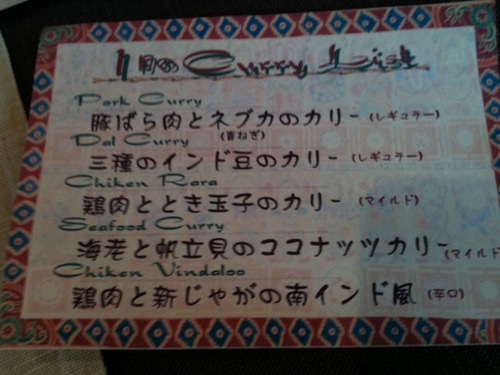 1月の Curry List
Pork Curry
豚ばら肉とネブカのカリー (レギュラー)
(青ねぎ)
Dal Curry
三種のインド豆のカリー (レギュラー)
Chiken Rara
鶏肉ととき玉子のカリー (マイルド)
Seafood Curry
海老と帆立貝のココナッツカリー (マイルド
Chiken Vindaloo
鶏肉と新じゃがの南インド風 (辛口)